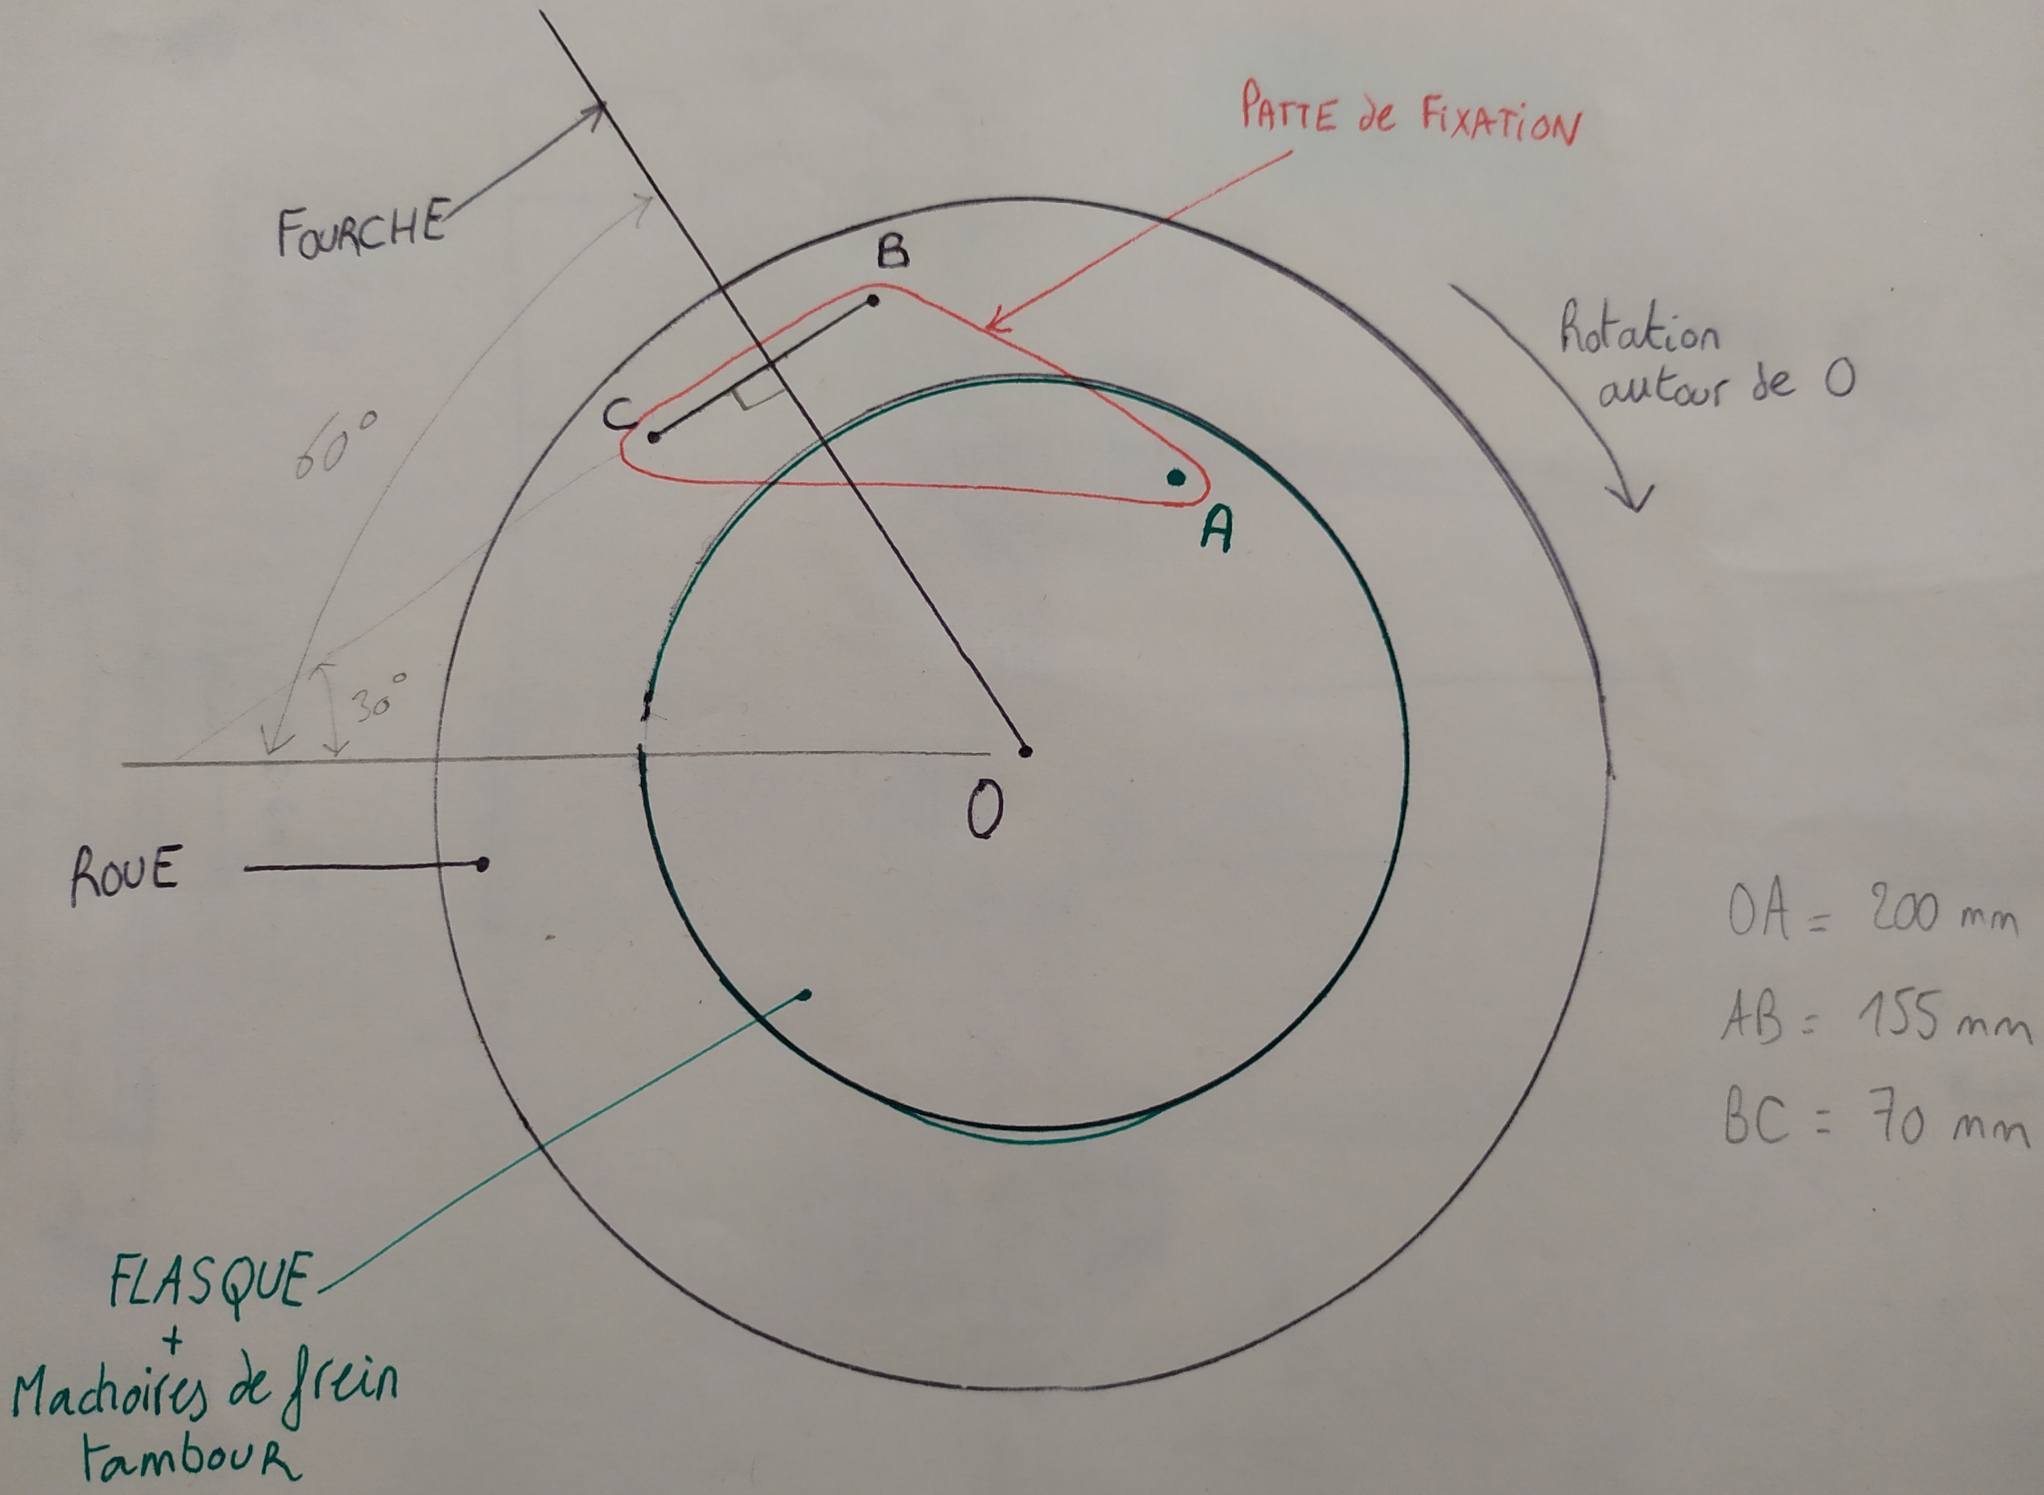 PATTE de FIXATION
FOURCHE
B
Rotation
autour de O
C
60°
A
30°
O
ROUE
OA = 200 mm
AB = 155 mm
BC = 70 mm
FLASQUE
+
Machoires de frein
tambour